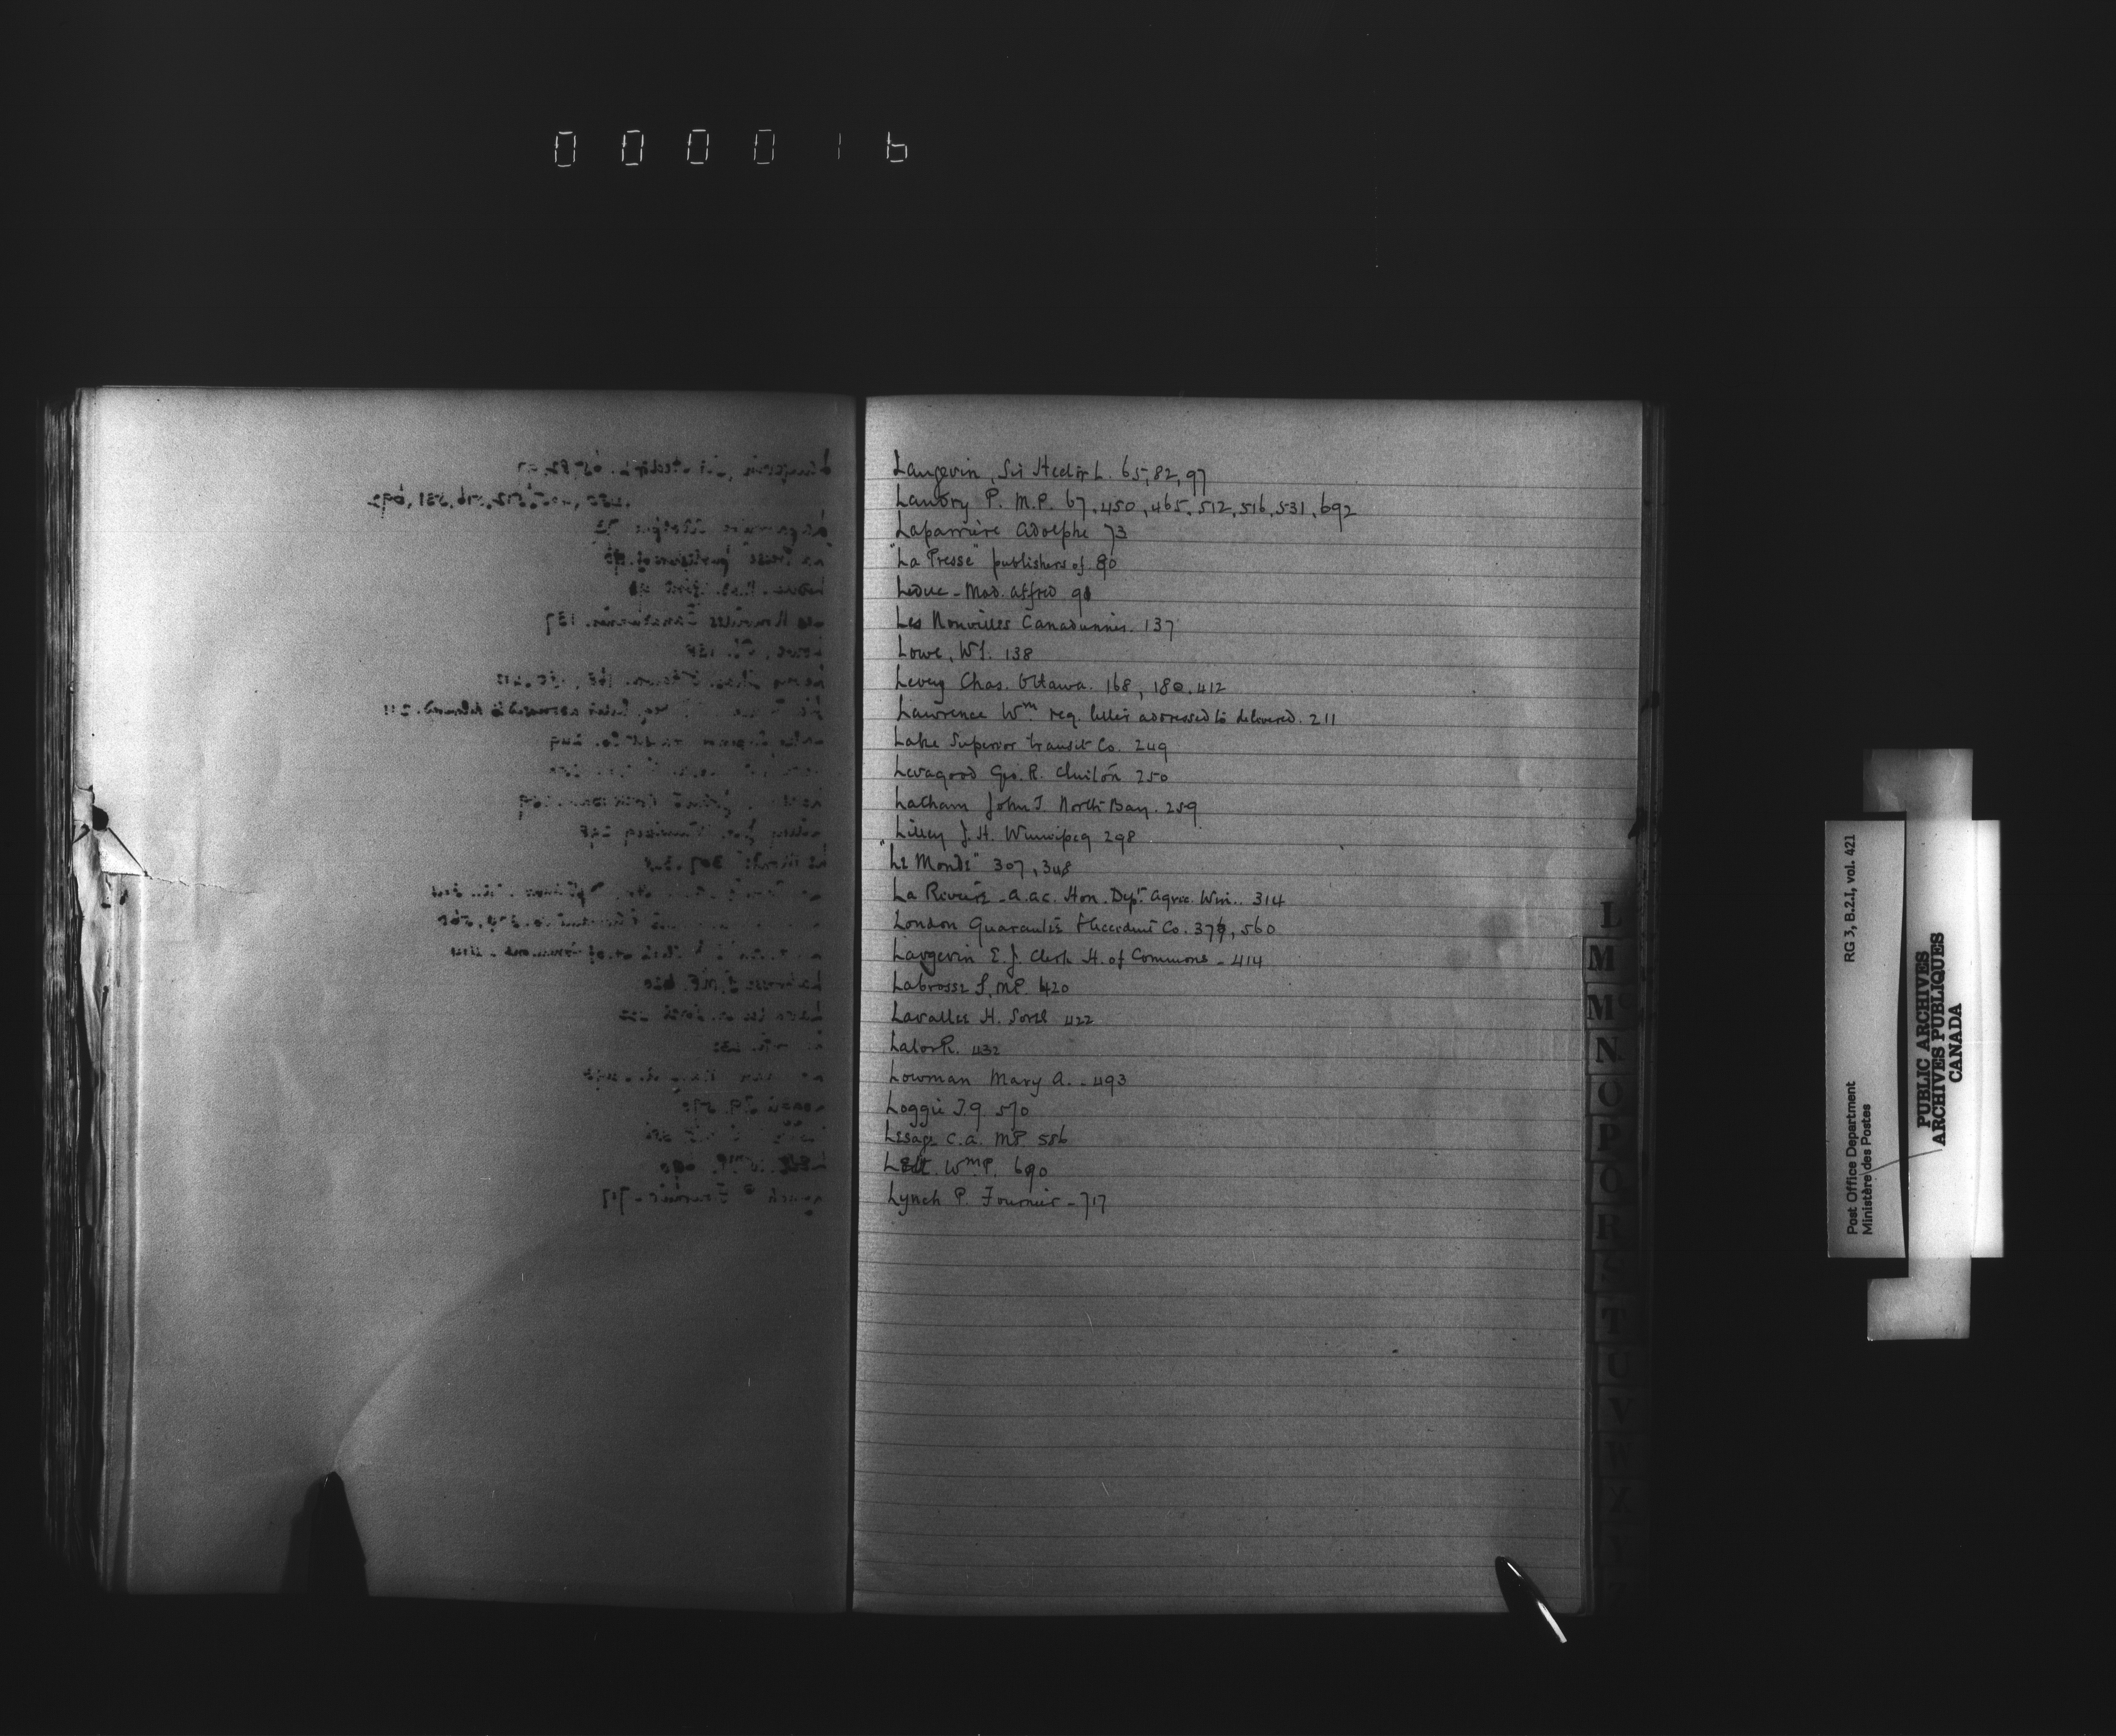 000016
Langevin, Sir Hector L. 65, 82, 97
Landry P. M.P. 67, 450, 465, 512, 516, 531, 692
Laparrière Adolphe 73
"La Presse" publishers of 80
Leduc - Mad. Alfred 98
Les Nouvelles Canadiennes. 137
Lowe, Wf. 138
Levey Chas. Ottawa. 168, 180, 412
Lawrence Wm reg. letter addressed to delivered. 211
Lake Superior transit Co. 249
Levagood Geo. R. 250
Latham John T. North Bay. 259
Lilley J. H. Winnipeg 298
"Le Monde" 307, 348
La Rivière - A.A.C. Hon. Dept Agric. Win.. 314
London Guarantee & Accident Co. 379, 560
Langevin E. J. Clerk H. of Commons - 414
Labrosse S, MP 420
Lavallee H. Sorel 422
Lalor R. 432
Lowman Mary A. - 493
Loggie T.G 570
Lesage C.A. MP 586
Wm P. 690
Lynch P. Fournier - 717
L
M
Mc
N
O
P
Q
R
S
T
U
V
W
X
Post Office Department
Ministère des Postes
RG 3, B.2.I, vol. 421
PUBLIC ARCHIVES
ARCHIVES PUBLIQUES
CANADA